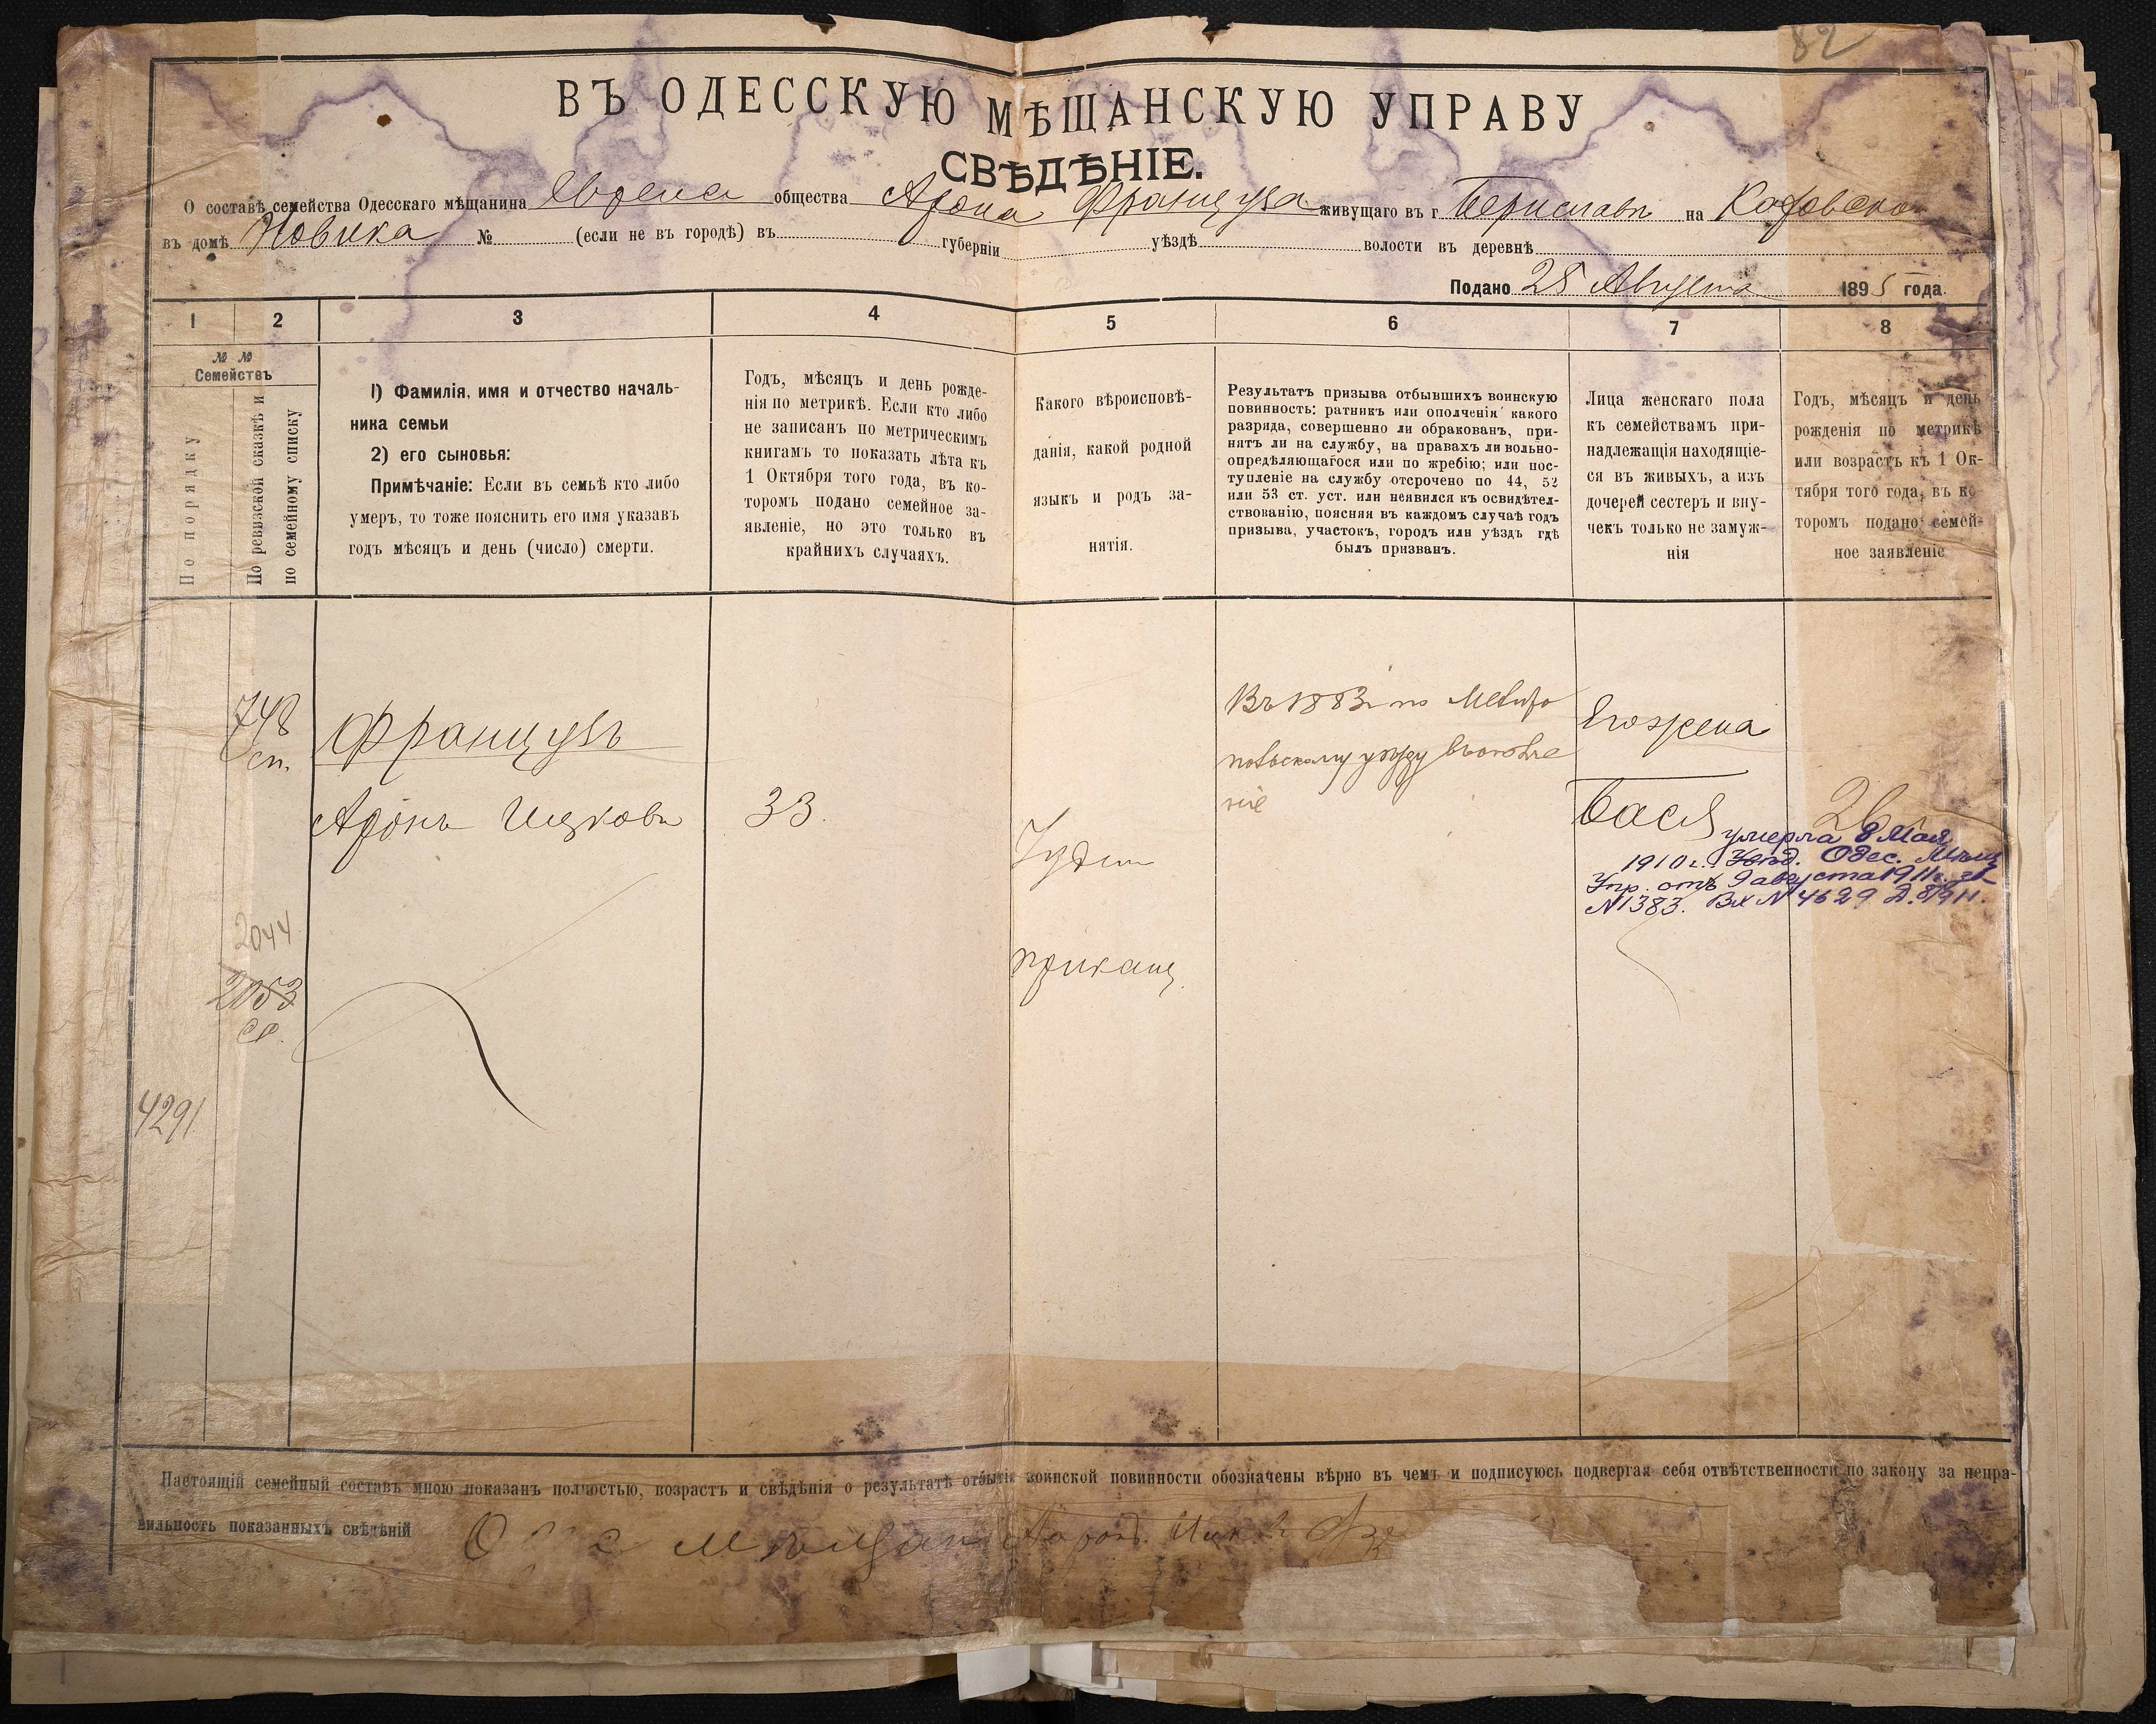 82
ВЪ ОДЕССКУЮ МѢЩАНСКУЮ УПРАВУ
СВѢДѢНІЕ.
О составѣ семейства Одесскаго мѣщанина Еврея общества Арона Француза живущаго въ г Бериславѣ на
въ домѣ Новика № (если не въ городѣ) въ губерніи уѣздѣ волости въ деревнѣ
Подано 25 Августа 1895 года.
1 2 3 4 5 6 7 8
№ №
Семействъ
По порядку
По ревизской сказкѣ и
по семейному списку
1) Фамилія, имя и отчество началь-
ника семьи
2) его сыновья:
Примѣчаніе: Если въ семьѣ кто либо
умеръ, то тоже пояснить его имя указавъ
годъ мѣсяцъ и день (число) смерти.
Годъ, мѣсяцъ и день рожде-
нія по метрикѣ. Если кто либо
не записанъ по метрическимъ
книгамъ то показать лѣта къ
1 Октября того года, въ ко-
торомъ подано семейное за-
явленіе, но это только въ
крайнихъ случаяхъ.
Какого вѣроисповѣ-
данія, какой родной
языкъ и родъ за-
нятія.
Результатъ призыва отбывшихъ воинскую
повинность: ратникъ или ополченія какого
разряда, совершенно ли обракованъ, при-
нятъ ли на службу, на правахъ ли вольно-
опредѣляющагося или по жребію; или пос-
тупленіе на службу отсрочено по 44, 52
или 53 ст. уст. или неявился къ освидѣтел-
ствованію, поясняя въ каждомъ случаѣ годъ
призыва, участокъ, городъ или уѣздъ гдѣ
былъ призванъ.
Лица женскаго пола
къ семействамъ при-
надлежащія находящіе-
ся въ живыхъ, а изъ
дочерей сестеръ и вну-
чекъ только не замуж-
нія
Годъ, мѣсяцъ и день
рожденія по метрикѣ
или возрастъ къ 1 Ок-
тября того года, въ ко
торомъ подано семей-
ное заявленіе
748
сп.
Французъ
Аронъ Ицковъ
33.
Іудей
приказч.
Въ 1883 г по Мелито
польскому уѣзду въ ополче
ніе
Его жена
Бася
26
умерла 8 Мая
1910 г. Увѣд. Одес. Мѣщ
Упр. отъ 9 августа 1911 г. за
№ 1383. Вх № 4629 Д. 8/911.
2044
2053
сп.
4291
Настоящій семейный составъ мною показанъ полностью, возрастъ и свѣдѣнія о результатѣ отбытія воинской повинности обозначены вѣрно въ чемъ и подписуюсь подвергая себя отвѣтственности по закону за непра-
вильность показанныхъ свѣдѣній